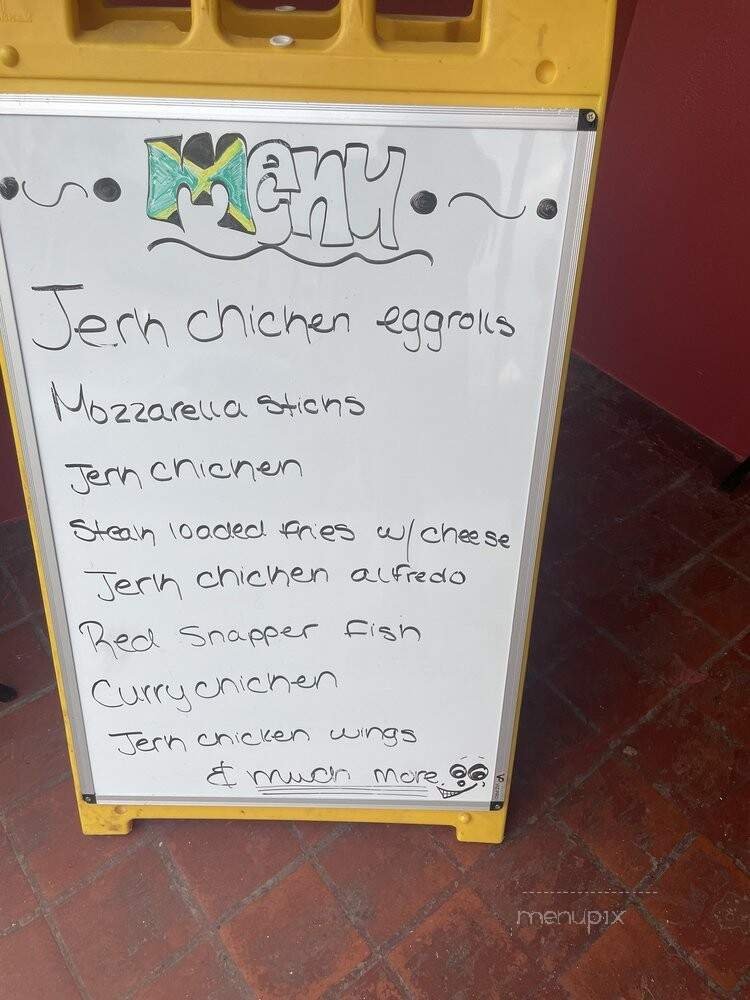 Menu
Jerk chicken eggrolls
Mozzarella sticks
Jerk chicken
Steak loaded fries w/cheese
Jerk chicken alfredo
Red snapper fish
Curry chicken
Jerk chicken wings
& much more.
menupix